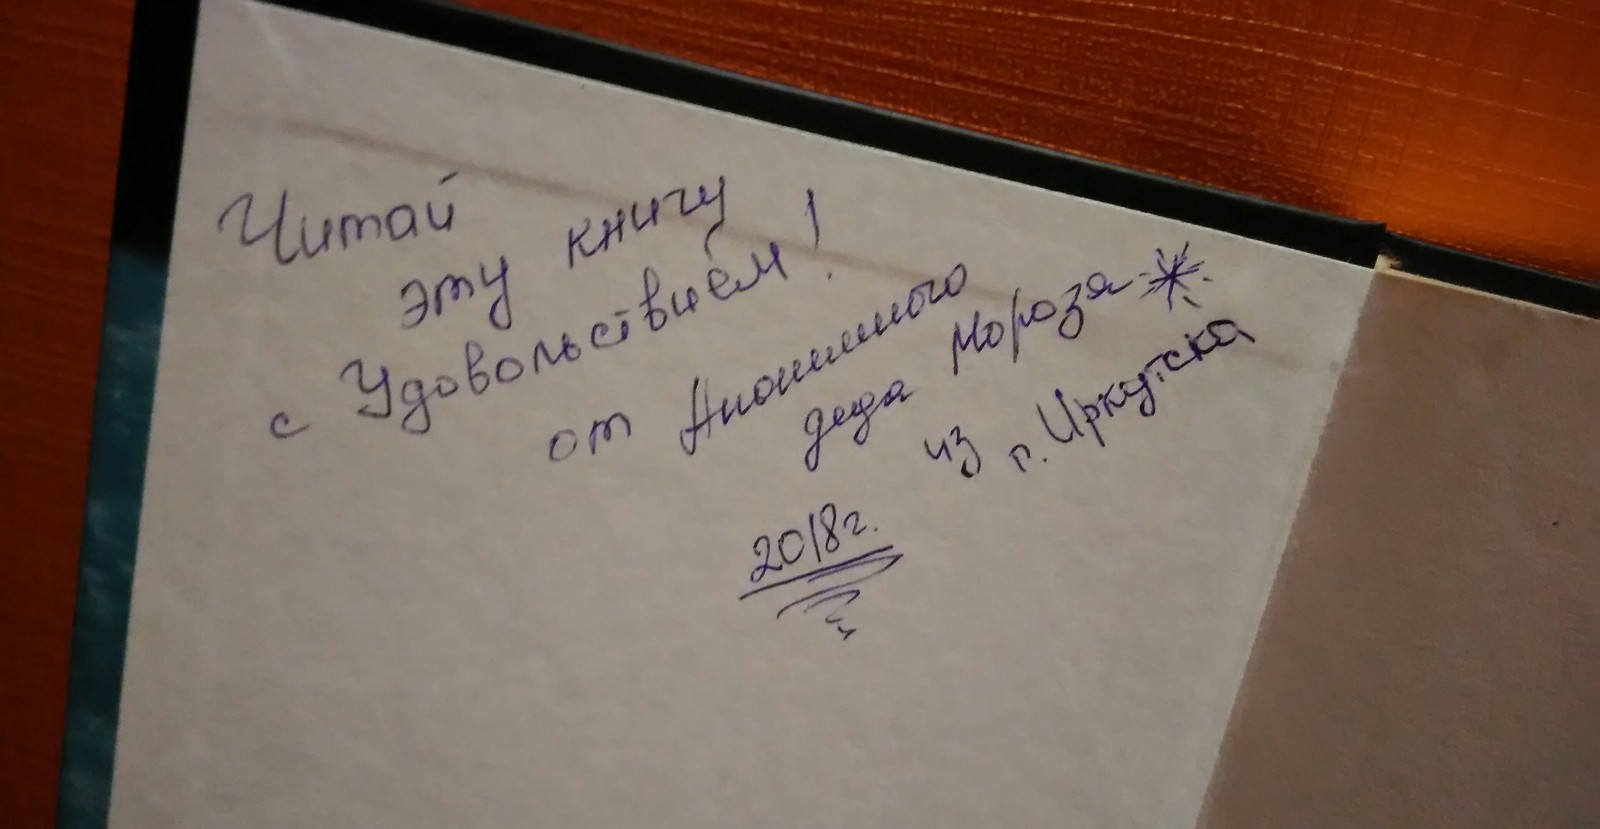 Читай
эту книгу
с Удовольствием!
от Анонимного
деда Мороза
из г. Иркутска
2018г.